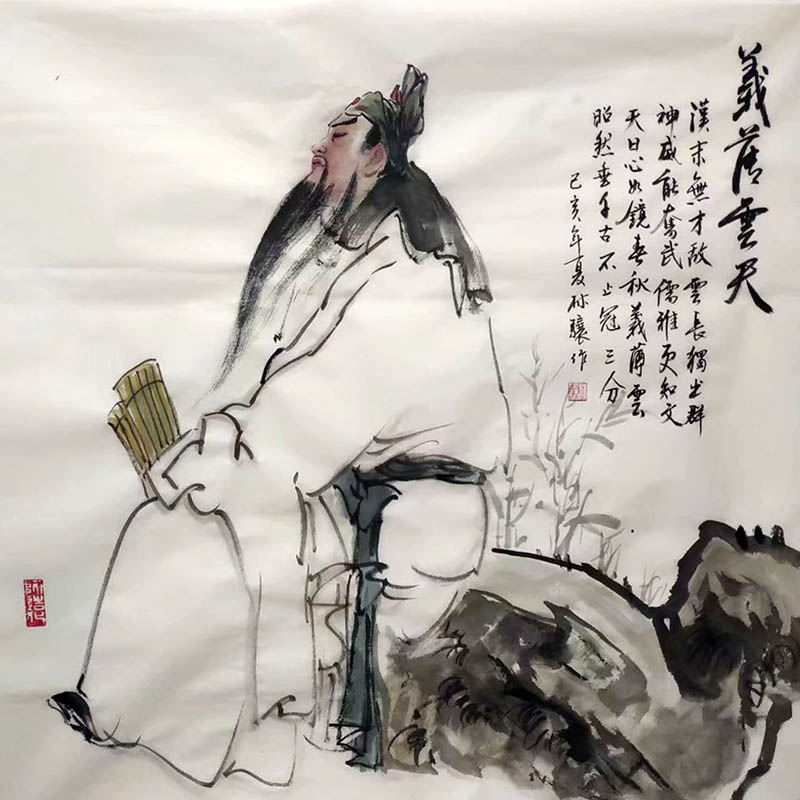 義薄雲天
漢末無才敵雲長獨出群
神威能奮武儒雅更知文
天日心如鏡春秋義薄雲
昭然垂千古不止冠三分
己亥年夏 作